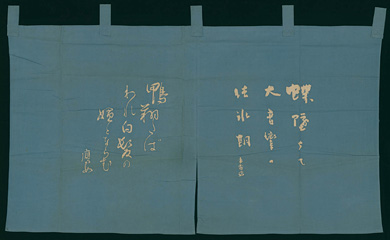 蝶墜ちて
大音響の
結氷期
赤黄男
鴨翔たば
われ白髪の
媼とならむ
鷹女